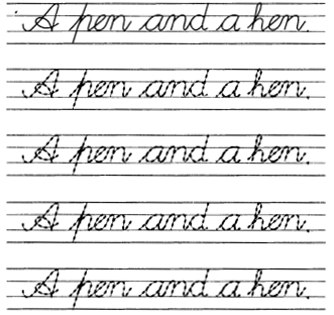 A pen and a hen.
A pen and a hen.
A pen and a hen.
A pen and a hen.
A pen and a hen.